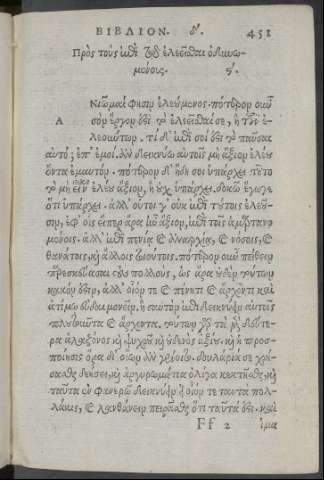 ΒΙΒΛΙΟΝ. δ'. 451
Πρὸς τοὺς ἐπὶ τῷ ἐλεεῖσθαι ὀδυνωμένοις. ς'.
Α Νιῶμαι φησιν ἐλεούμενος. πότερον οὖν
σὸν ἔργον ἐστὶ τὸ ἐλεεῖσθαί σε, ἢ τῶν ἐλεούντων. τί δ' ἐπὶ σοί ἐστι τὸ παῦσαι
αὐτό; ἐπ' ἐμοί. ἂν δεικνύω αὐτοῖς μὴ ἄξιον ἐλέου
ὄντα ἐμαυτόν. πότερον δ' ἤδη σοι ὑπάρχει τοῦτο
τὸ μὴ εἶναι ἐλέου ἄξιον, ἢ οὐχ ὑπάρχει. δοκῶ ἔγωγε
ὅτι ὑπάρχει. ἀλλ' οὗτοί γ' οὐκ ἐπὶ τούτοις ἐλεοῦσιν, ἐφ' οἷς εἴπερ ἄρα ἦν ἄξιον, ἐπὶ τοῖς ἁμαρτανομένοις. ἀλλ' ἐπὶ πενίᾳ καὶ ἀναρχίᾳ, καὶ νόσοις, καὶ
θανάτοις, καὶ ἄλλοις τοιούτοις. πότερον οὖν πείθειν
παρεσκεύασαι τοὺς πολλοὺς, ὡς ἄρα οὐδὲν τούτων
κακόν ἐστιν, ἀλλ' οἷόν τε καὶ πένητι καὶ ἀνάρχοντι καὶ
ἀτίμῳ εὐδαιμονεῖν, ἢ σαυτὸν ἐπιδεικνύειν αὐτοῖς
πλουτοῦντα καὶ ἄρχοντα. τούτων γὰρ τὰ μὲν δεύτερα ἀλαζόνος καὶ ψυχροῦ καὶ οὐδενὸς ἀξίου. καὶ ἡ προσποίησις ὅρα δι' οἵων ἂν γένοιτο. δουλάριά σε χρήσασθαι δεήσει, καὶ ἀργυρωμάτια ὀλίγα κεκτῆσθαι, καὶ
ταῦτα ἐν φανερῷ δεικνύειν εἰ οἷόν τε ταυτα πολλάκις, καὶ λανθάνειν πειρᾶσθαι ὅτι ταῦτά ἐστι. καὶ
Ff 2 ἱμα